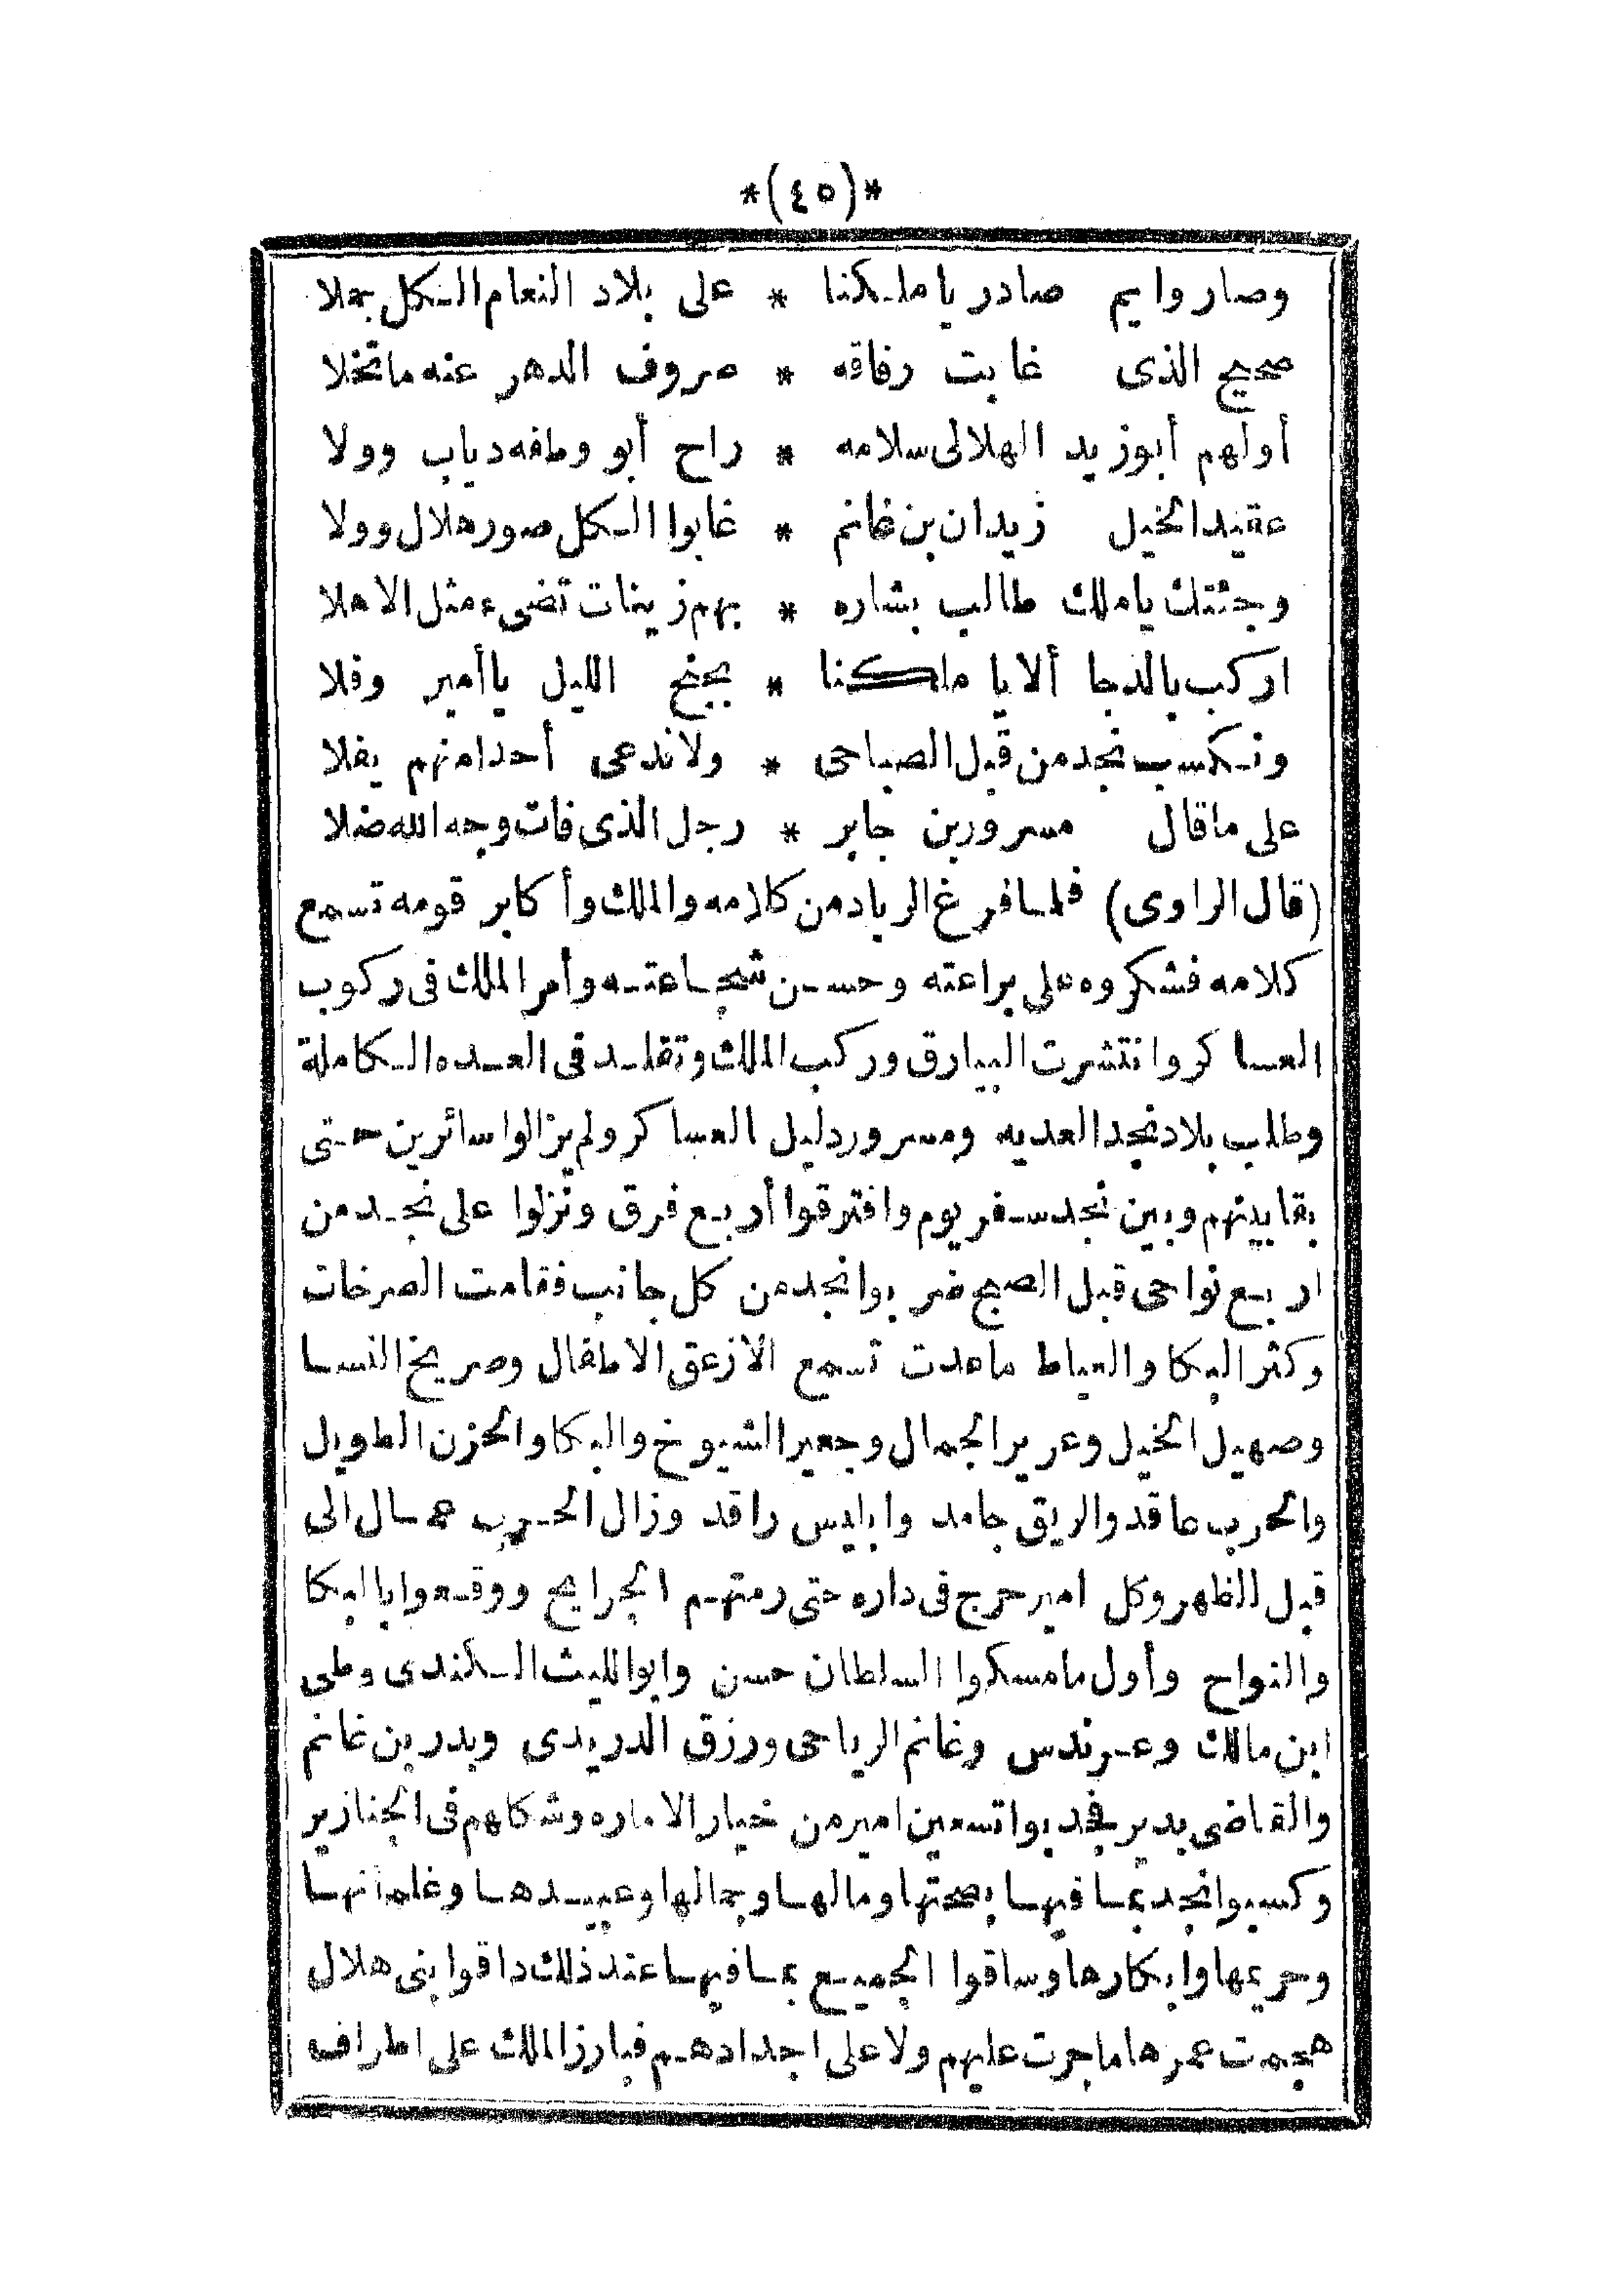 *(٤٥)*
وصاروا يم صادر يا ملكنا * على بلاد النعام الكل جملا
صحيح الذى غابت رفاقه * صروف الدهر عنه ما تخلا
أولهم أبوزيد الهلالى سلامه * راح أبو وطفه دياب وولا
عقيد الخيل زيدان بن غانم * غابوا الكل صور هلال وولا
وجئتك يا ملك طالب بشاره * بهم زينات تضىء مثل الاهلا
اركب بالدجا ألا يا ملكنا * بجنح الليل يا أمير وفلا
ونكسب نجد من قبل الصباحى * ولا ندعى أحدا منهم يفلا
على ما قال مسرور بن جابر * رجل الذى فات وجه الله ضلا
(قال الراوى) فلما فرغ الرياد من كلامه والملك وأكابر قومه تسمع
كلامه فشكروه على براعته وحسن شجاعته وأمر الملك فى ركوب
العساكر وانتشرت البيارق وركب الملك وتقلد فى العده الكاملة
وطلب بلاد نجد العديه ومسرور دليل العساكر ولم يزالوا سائرين حتى
بقا بينهم وبين نجد سفر يوم وافترقوا أربع فرق ونزلوا على نجد من
اربع نواحى قبل الصبح ضربوا نجد من كل جانب فقامت الصرخات
وكثر البكا والعياط ما عدت تسمع الا زعق الاطفال وصريخ النسا
وصهيل الخيل وعرير الجمال وجعير الشيوخ والبكا والحزن الطويل
والحرب عاقد والريق جامد وابليس راقد وزال الحرب عمال الى
قبل الظهر وكل امير حرج فى داره حتى رمتهم الجرايح ووقعوا بالبكا
والنواح وأول ما مسكوا السلطان حسن وابو الليث الكندى وطى
ابن مالك وعرندس وغانم الرياحى ورزق الدريدى وبدر بن غانم
والقاضى بدير فجدبوا تسعين امير من خيار الاماره وشكاهم فى الجنازير
وكسبوا نجد بما فيها بصحتها ومالها وجمالها وعبيدها وغلمانها
وحريمها وابكارها وساقوا الجميع بما فيها عند ذلك داقوا بنى هلال
هجمت عمرها ما جرت عليهم ولا على اجدادهم فبارز الملك على اطراف